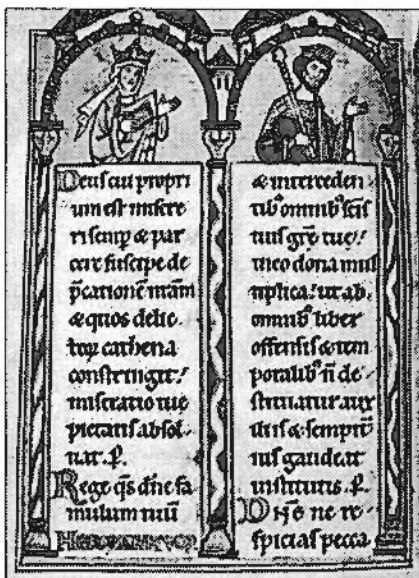 Deus cui propri
um est misere
ri semp & par
cere suscipe de
p̄cationē nr̄am
& quos delic
toꝝ cathena
constringit:
miseratio tue
pietatis absol
uat. P.
Rege qs dn̄e fa
mulum tuū
& interceden
tibꝰ omnibꝰ scīs
tuis grē tue
in eo dona mul
tiplica: ut ab
omnibꝰ liber
offensis & tem
poralibꝰ n̄ de
stituatur aux
iliis & sempit̄
nis gaudeat
institutis. P.
ne re
spicias pecca